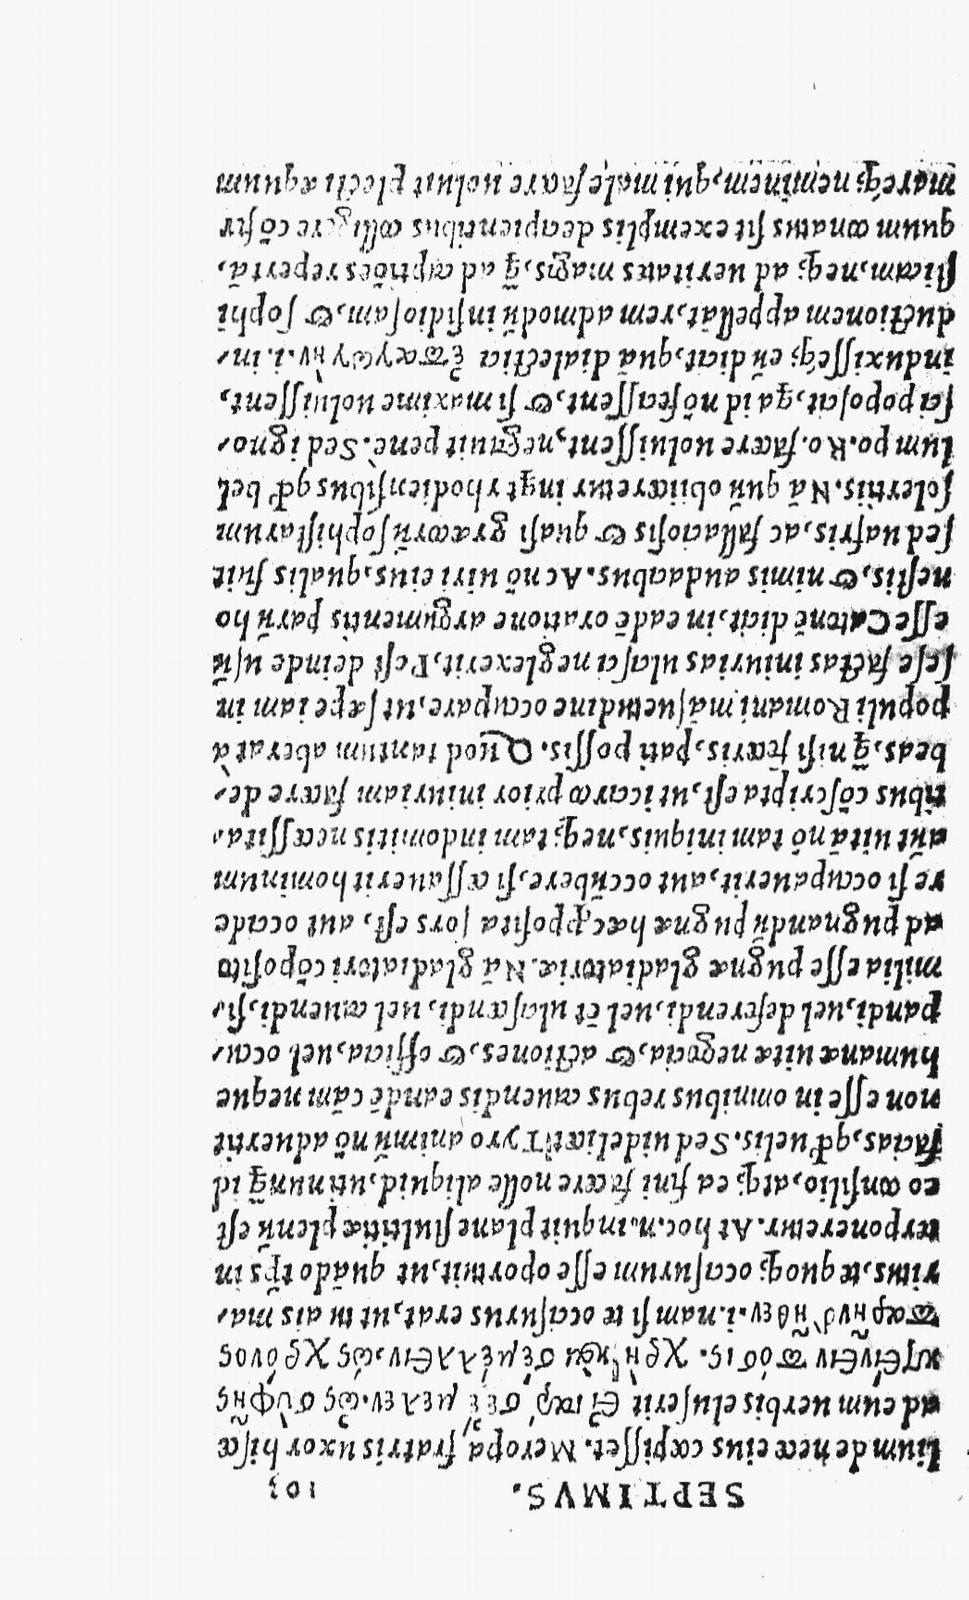 SEPTIMVS. 103
lium de nece eius cœpisset. Meropa fratris uxor hisce
ad eum uerbis eluserit
χρόνος
nam si te occisurus erat, ut tu ais ma⸗
ritus, te quoq; occisurum esse oportuit, ut quādo tp̄s in
terponeretur. At hoc.n. inquit plane stultitiæ plenū est
eo consilio, atq; ea fini facere nolle aliquid, uti nunq̄ id
facias, qd' uelis. Sed uidelicet Tyro animū nō aduertit
non esse in omnibus rebus cauendis eandē cām neque
humanæ uitæ negocia, & actiones, & officia, uel occu⸗
pandi, uel deferendi, uel ēt ulciscendi, uel cauendi, si⸗
milia esse pugnæ gladiatoriæ. Nā gladiatori cōposito
ad pugnandū pugnæ hæc ꝓposita sors est, aut occide
re si occupauerit, aut occūbere, si cessauerit hominum
aut uitā nō tam iniquis, neq; tam indomitis necessita⸗
tibus cōscripta est, ut iccirco prior iniuriam facere de⸗
beas, q̄ nisi feceris, pati possis. Quod tantum aberat à
populi Romani māsuetudine occupare, ut sæpe iam in
sese factas iniurias ulcisci neglexerit, Post deinde usū
esse Catonē dicit, in eadē oratione argumentis parū ho
nestis, & nimis audacibus. Ac nō uiri eius, qualis fuit
sed uafris, ac fallaciosis & quasi græcorū sophistarum
solertiis. Nā quū obiiceretur inqt rhodiensibus qd' bel
lum po. Ro. facere uoluissent, negauit penè. Sed igno⸗
sci poposcit, q̄a id nō fecissent, & si maxime uoluissent,
induxisseq; eū dicit, quā dialectici ἐπαγωγὴν.i. in⸗
ductionem appellāt, rem admodū insidiosam, & sophi
sticam, neq; ad ueritates magis, q̄ ad captiōes repertā,
quum conatus sit exemplis decipientibus colligere cōfir
mareq́; neminem, qui male facere uoluit plecti æquum